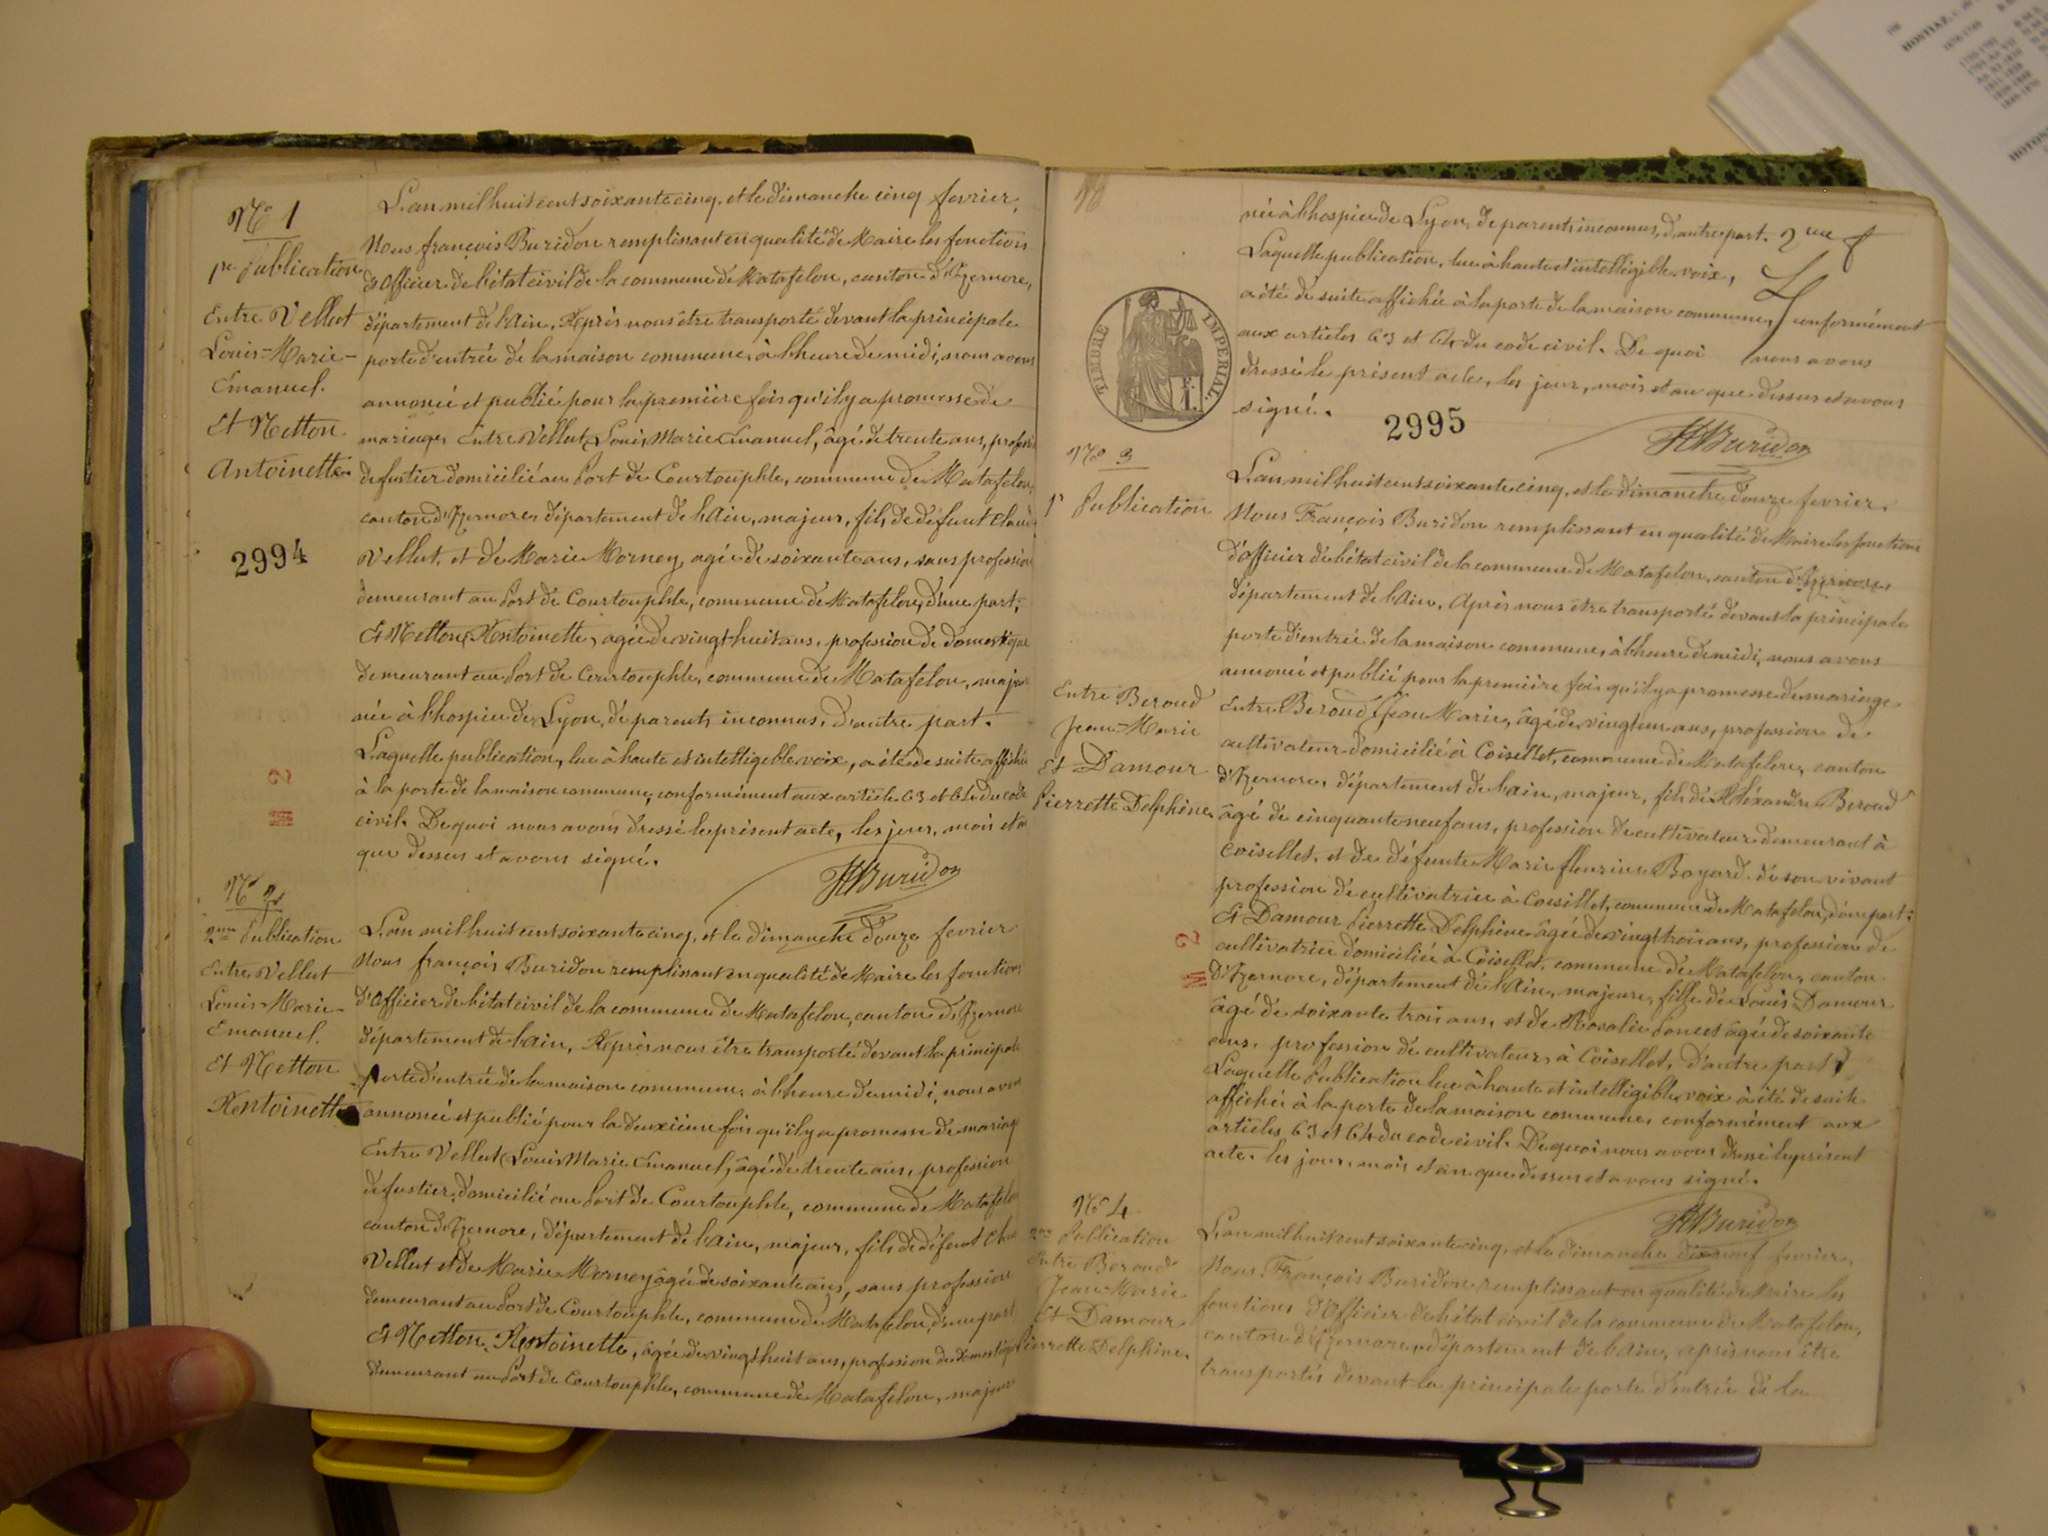 No 1
1re Publication
Entre Vellut
Louis-Marie-
Emanuel.
Et Netton
Antoinette.
2994
L'an mil huit cent soixante cinq, et le dimanche cinq fevrier,
Nous françois Buridon remplissant en qualité de Maire les fonctions
d'Officier de l'état civil de la commune de Matafelon, canton d'Izernore,
département de l'Ain, Après nous être transporté devant la principale
porte d'entrée de la maison commune, à l'heure de midi, nous avons
annoncé et publié pour la première fois qu'il y a promesse de
mariage, Entre Vellut Louis Marie Emanuel, âgé de trente ans, profession
de fustier domicilié au Port de Courtouphle, commune de Matafelon,
canton d'Izernore, département de l'Ain, majeur, fils de défunt Claude
Vellut, et de Marie Morney, agée de soixante ans, sans profession
demeurant au Port de Courtouphle, commune de Matafelon, d'une part;
Et Netton, Antoinette, agée de vingt-huit ans, profession de domestique
demeurant au Port de Courtouphle, commune de Matafelon, majeur
née à l'hospice de Lyon, de parents inconnus, d'autre part.
Laquelle publication, lue à haute et intelligible voix, a été de suite affichée
à la porte de la maison commune, conformément aux article 63 et 64 du code
civil. De quoi nous avons dressé le présent acte, les jour, mois et an
que dessus et avons signé.
Buridon
No 2
2me Publication
Entre Vellut
Louis-Marie-
Emanuel.
Et Netton
Antoinette
L'an mil huit cent soixante cinq, et le dimanche douze fevrier
Nous françois Buridon remplissant en qualité de Maire les fonctions
d'Officier de l'état civil de la commune de Matafelon, canton d'Izernore
département de l'ain, Après nous être transporté devant la principale
porte d'entrée de la maison commune, à l'heure de midi, nous avons
annoncé et publié pour la deuxième fois qu'il y a promesse de mariage
Entre Vellut Louis Marie Emanuel, âgé de trente ans, profession
de fustier, domicilié au Port de Courtouphle, commune de Matafelon
canton d'Izernore, département de l'Ain, majeur, fils de défunt Claude
Vellut et de Marie Morney âgée de soixante ans, sans profession
demeurant au Port de Courtouphle, commune de Matafelon, d'une part
Et Netton, Antoinette, âgée de vingt huit ans, profession de domestique
demeurant au Port de Courtouphle, commune de Matafelon, majeur
née à l'hospice de Lyon, de parents inconnus, d'autre part.
Laquelle publication, lue à haute et intelligible voix,
a été de suite affichée à la porte de la maison commune, conformément
aux articles 63 et 64 du code civil. De quoi nous avons
dressé le présent acte, les jour, mois et an que dessus et avons
signé.
TIMBRE IMPERIAL
2995
Buridon
No 3
1re Publication
Entre Beroud
Jean-Marie
Et Damour
Pierrette Delphine.
L'an mil huit cent soixante cinq, et le dimanche douze fevrier,
Nous François Buridon remplissant en qualité de Maire les fonctions
d'officier de l'état civil de la commune de Matafelon, canton d'Izernore,
département de l'Ain, Après nous être transporté devant la principale
porte d'entrée de la maison commune, à l'heure de midi, nous avons
annoncé et publié pour la première fois qu'il y a promesse de mariage
Entre Beroud Jean Marie, âgé de vingt un ans, profession de
cultivateur domicilié à Coisellet, commune de Matafelon, canton
d'Izernore, département de l'ain, majeur, fils de Aléxandre Beroud
âgé de cinquante neuf ans, profession de cultivateur demeurant à
Coisellet, et de défunte Marie fleurine Bayard de son vivant
profession de cultivatrice à Coisellet, commune de Matafelon, d'une part:
Et Damour Pierrette Delphine âgée de vingt trois ans, profession de
cultivatrice domiciliée à Coisellet, commune de Matafelon, canton
d'Izernore, département de l'Ain, majeure, fille de Louis Damour
âgé de soixante trois ans, et de Rosalie Poncet âgé de soixante
ans, profession de cultivateurs à Coisellet, d'autre part
Laquelle Publication lue à haute et intelligible voix à été de suite
affichée à la porte de la maison commune, conformément aux
articles 63 et 64 du code civil. De quoi nous avons dressé le présent
acte. les jour, mois et an que dessus et avons signé.
Buridon
No 4
2me Publication
Entre Beroud
Jean-Marie
Et Damour
Pierrette Delphine.
L'an mil huit cent soixante cinq, et le dimanche dix neuf fevrier,
Nous François Buridon remplissant en qualité de Maire les
fonctions d'Officier de l'état civil de la commune de Matafelon,
canton d'Izernore, département de l'Ain, après nous être
transportés devant la principale porte d'entrée de la